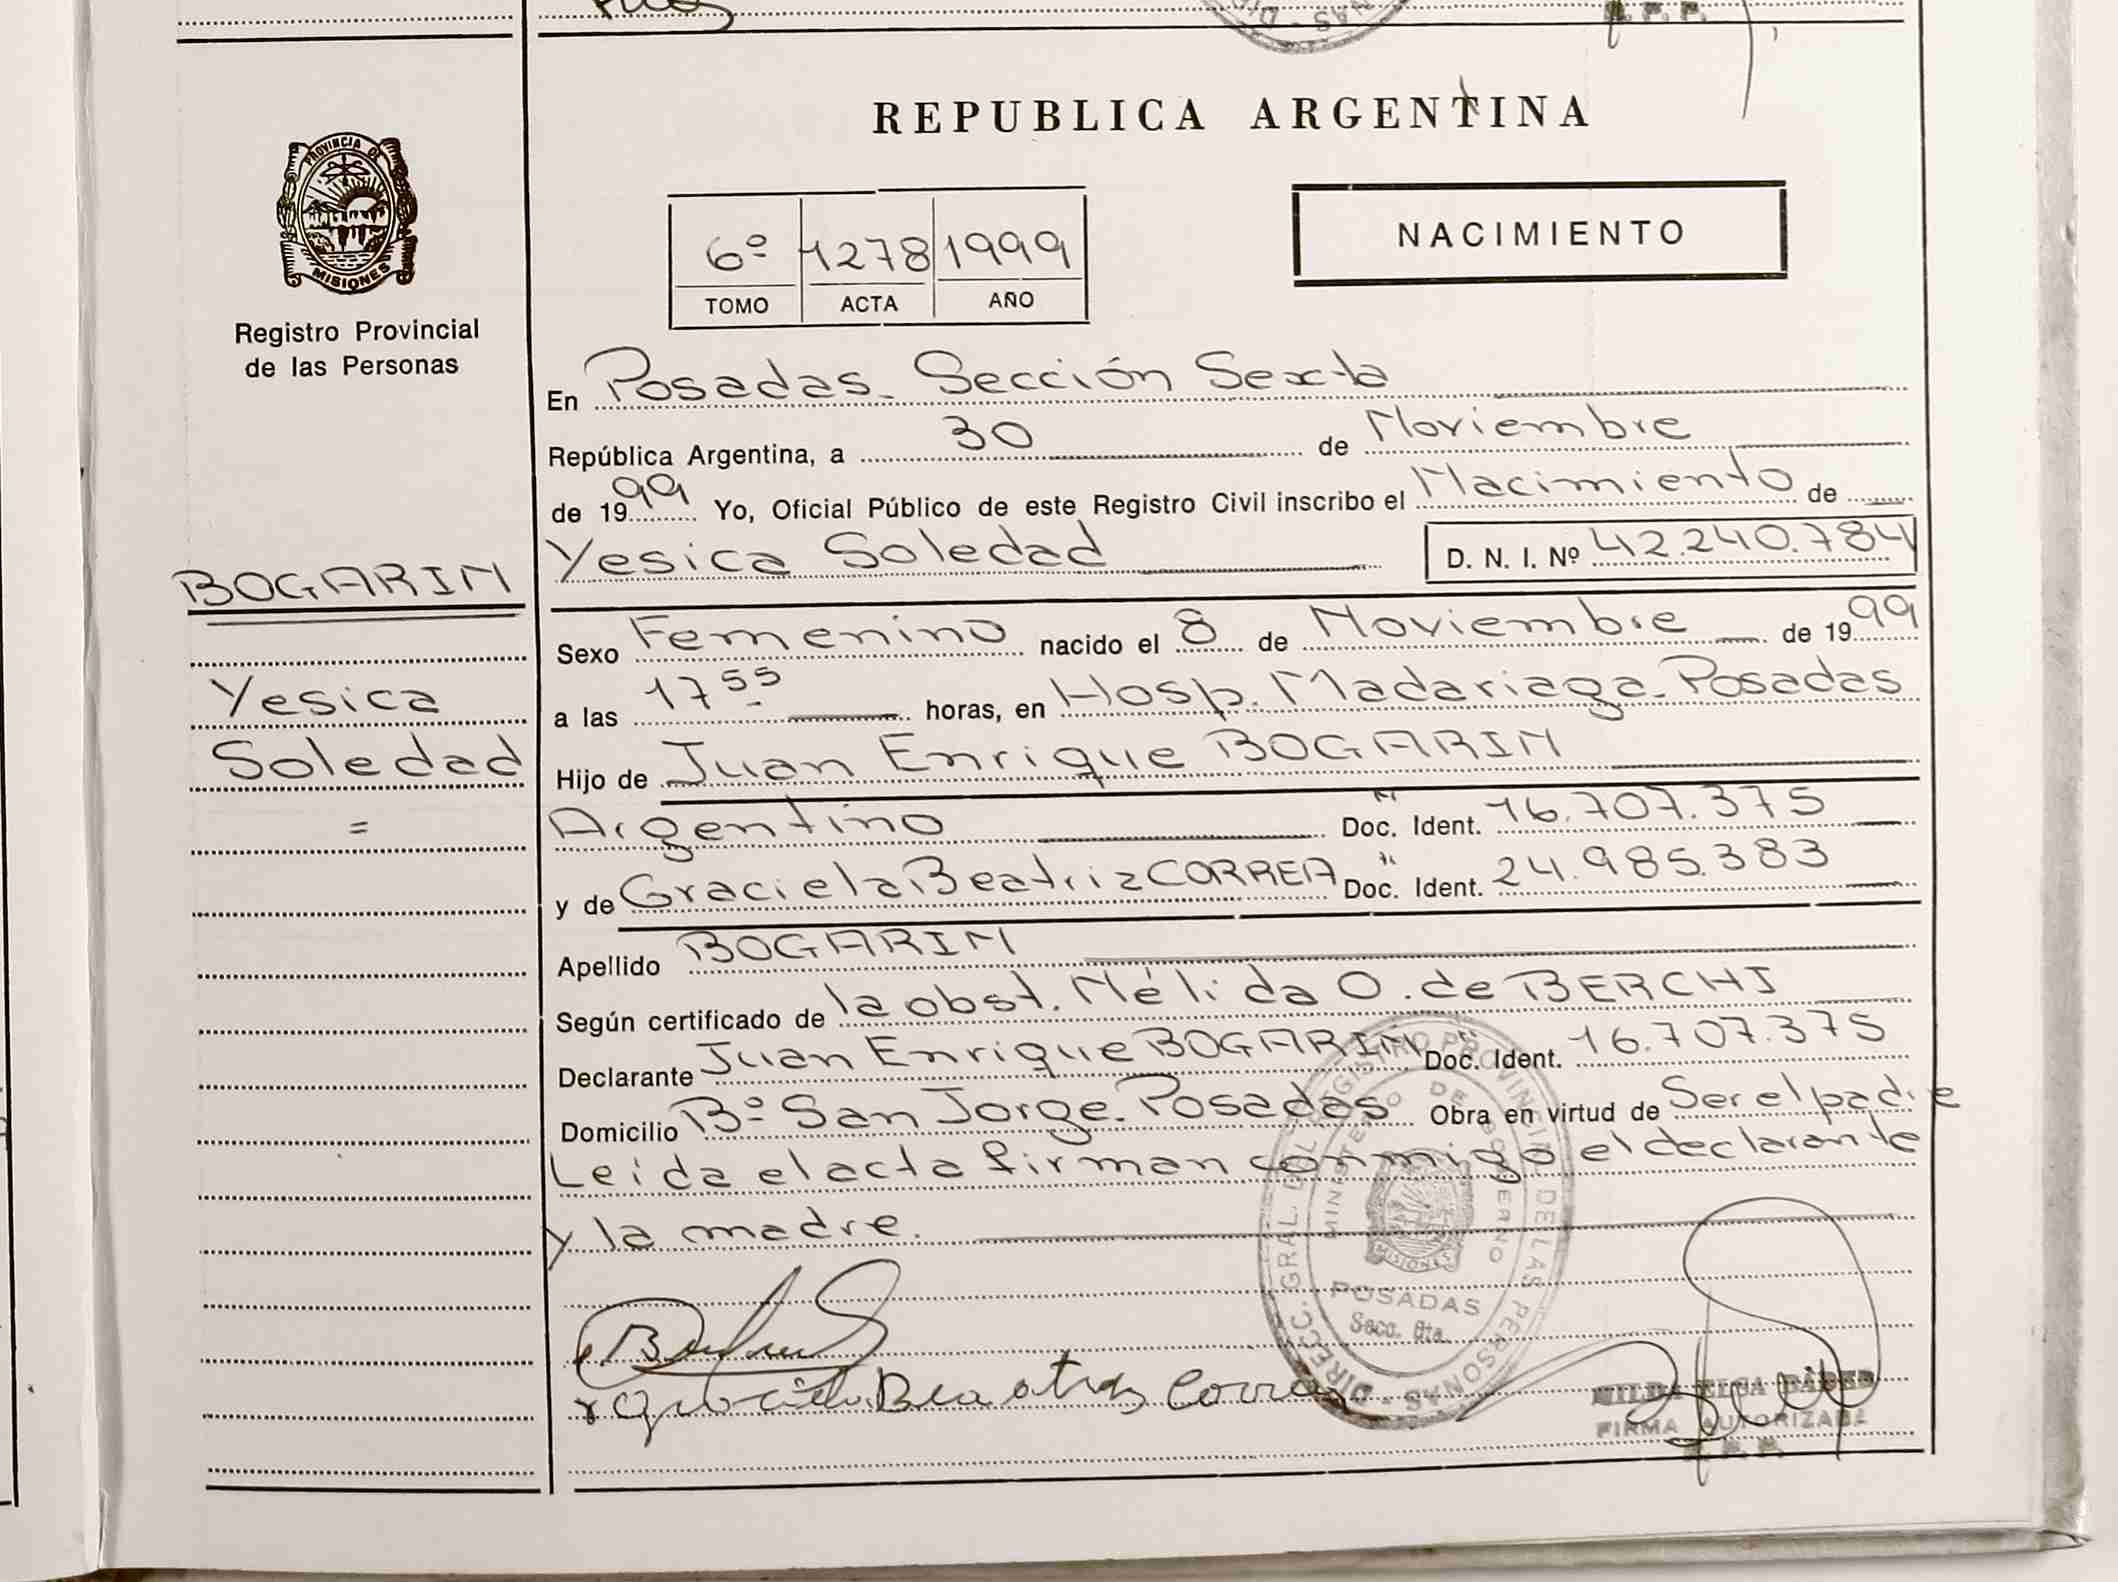 REPUBLICA ARGENTINA
PROVINCIA DE
MISIONES
Registro Provincial
de las Personas
6º 1278 1999
TOMO ACTA AÑO
NACIMIENTO
En Posadas. Sección Sexta
República Argentina, a 30 de Noviembre
de 1999 Yo, Oficial Público de este Registro Civil inscribo el Nacimiento de
Yesica Soledad D. N. I. Nº 42.240.784
BOGARIN
Yesica
Soledad
=
Sexo Femenino nacido el 8 de Noviembre de 1999
a las 17 55 horas, en Hosp. Madariaga. Posadas
Hijo de Juan Enrique BOGARIN
Argentino Doc. Ident. 16.707.375
y de Graciela Beatriz CORREA Doc. Ident. 24.985.383
Apellido BOGARIN
Según certificado de la obst. Nélida O. de BERCHI
Declarante Juan Enrique BOGARIN Doc. Ident. 16.707.375
Domicilio Bº San Jorge. Posadas Obra en virtud de Ser el padre
Leída el acta firman conmigo el declarante
y la madre.
DIRECC. GRAL. DEL REGISTRO PROVIN. DE LAS PERSONAS
MINISTERIO DE GOBIERNO
MISIONES
POSADAS
Secc. 6ta.
Graciela Beatriz Correa
HILDA ELSA
FIRMA AUTORIZADA
R. P. P.